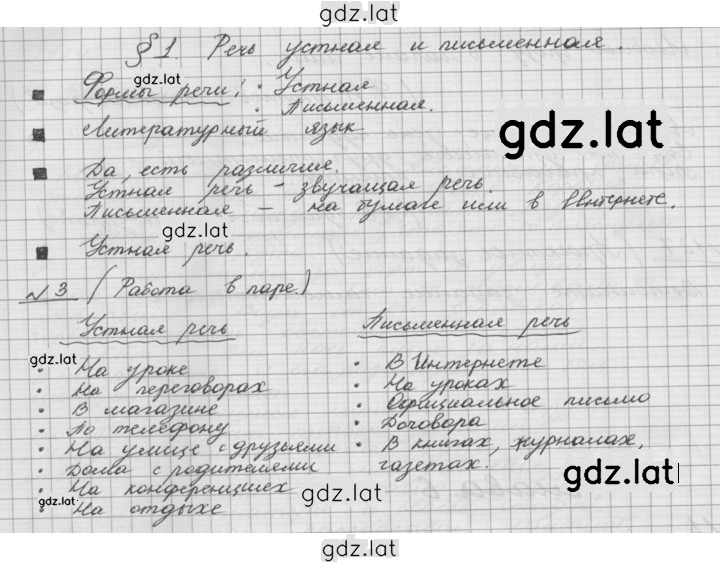 gdz.lat
§ 1. Речь устная и письменная.
gdz.lat
Формы речи: · Устная
· Письменная.
Литературный язык
gdz.lat
Да, есть различия.
Устная речь - звучащая речь.
Письменная - на бумаге или в Интернете.
gdz.lat
Устная речь.
№3 (Работа в паре.)
Устная речь
Письменная речь
gdz.lat
· На уроке
· На переговорах
· В магазине
· По телефону
· На улице с друзьями
· Дома с родителями
· На конференциях
· На отдыхе
· В Интернете
· На уроках
· Официальное письмо
· Договора
· В книгах, журналах,
газетах.
gdz.lat
gdz.lat
gdz.lat